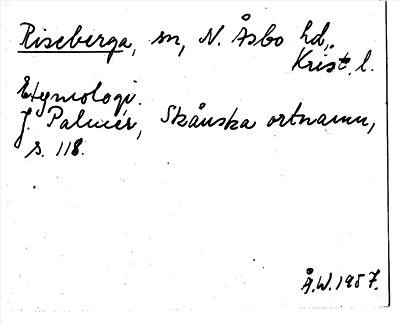 Riseberga, sn, N. Åsbo hd,
Krist. l.
Etymologi.
J. Palmér, Skånska ortnamn,
s. 118.
Å.W. 1957.